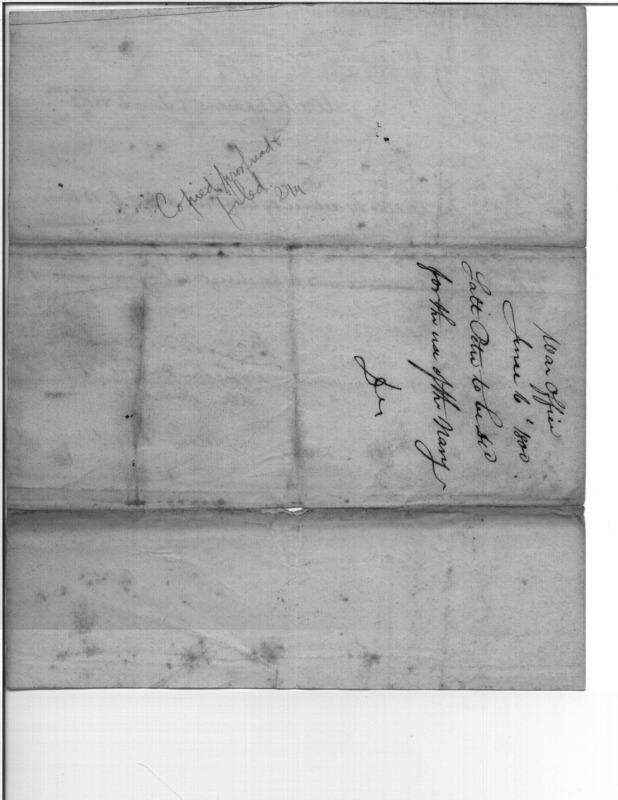 Copied, proofread &
filed.
War Office
June 6th 1800.
Salt Petre to be
for the use of the Navy